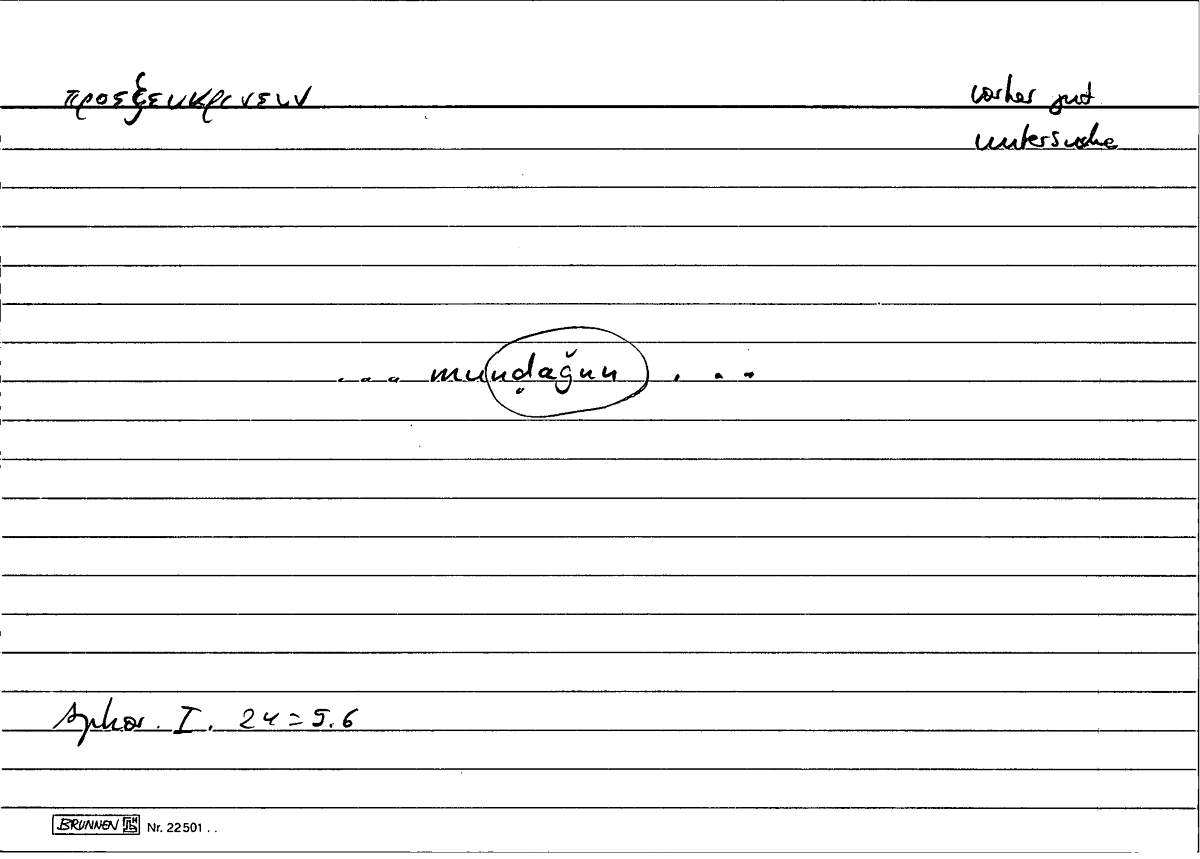 προεξευκρινειν vorher gut
untersuche
... munḍağun ...
Aphor. I. 24 = 5.6
BRUNNEN Nr. 22501 ..